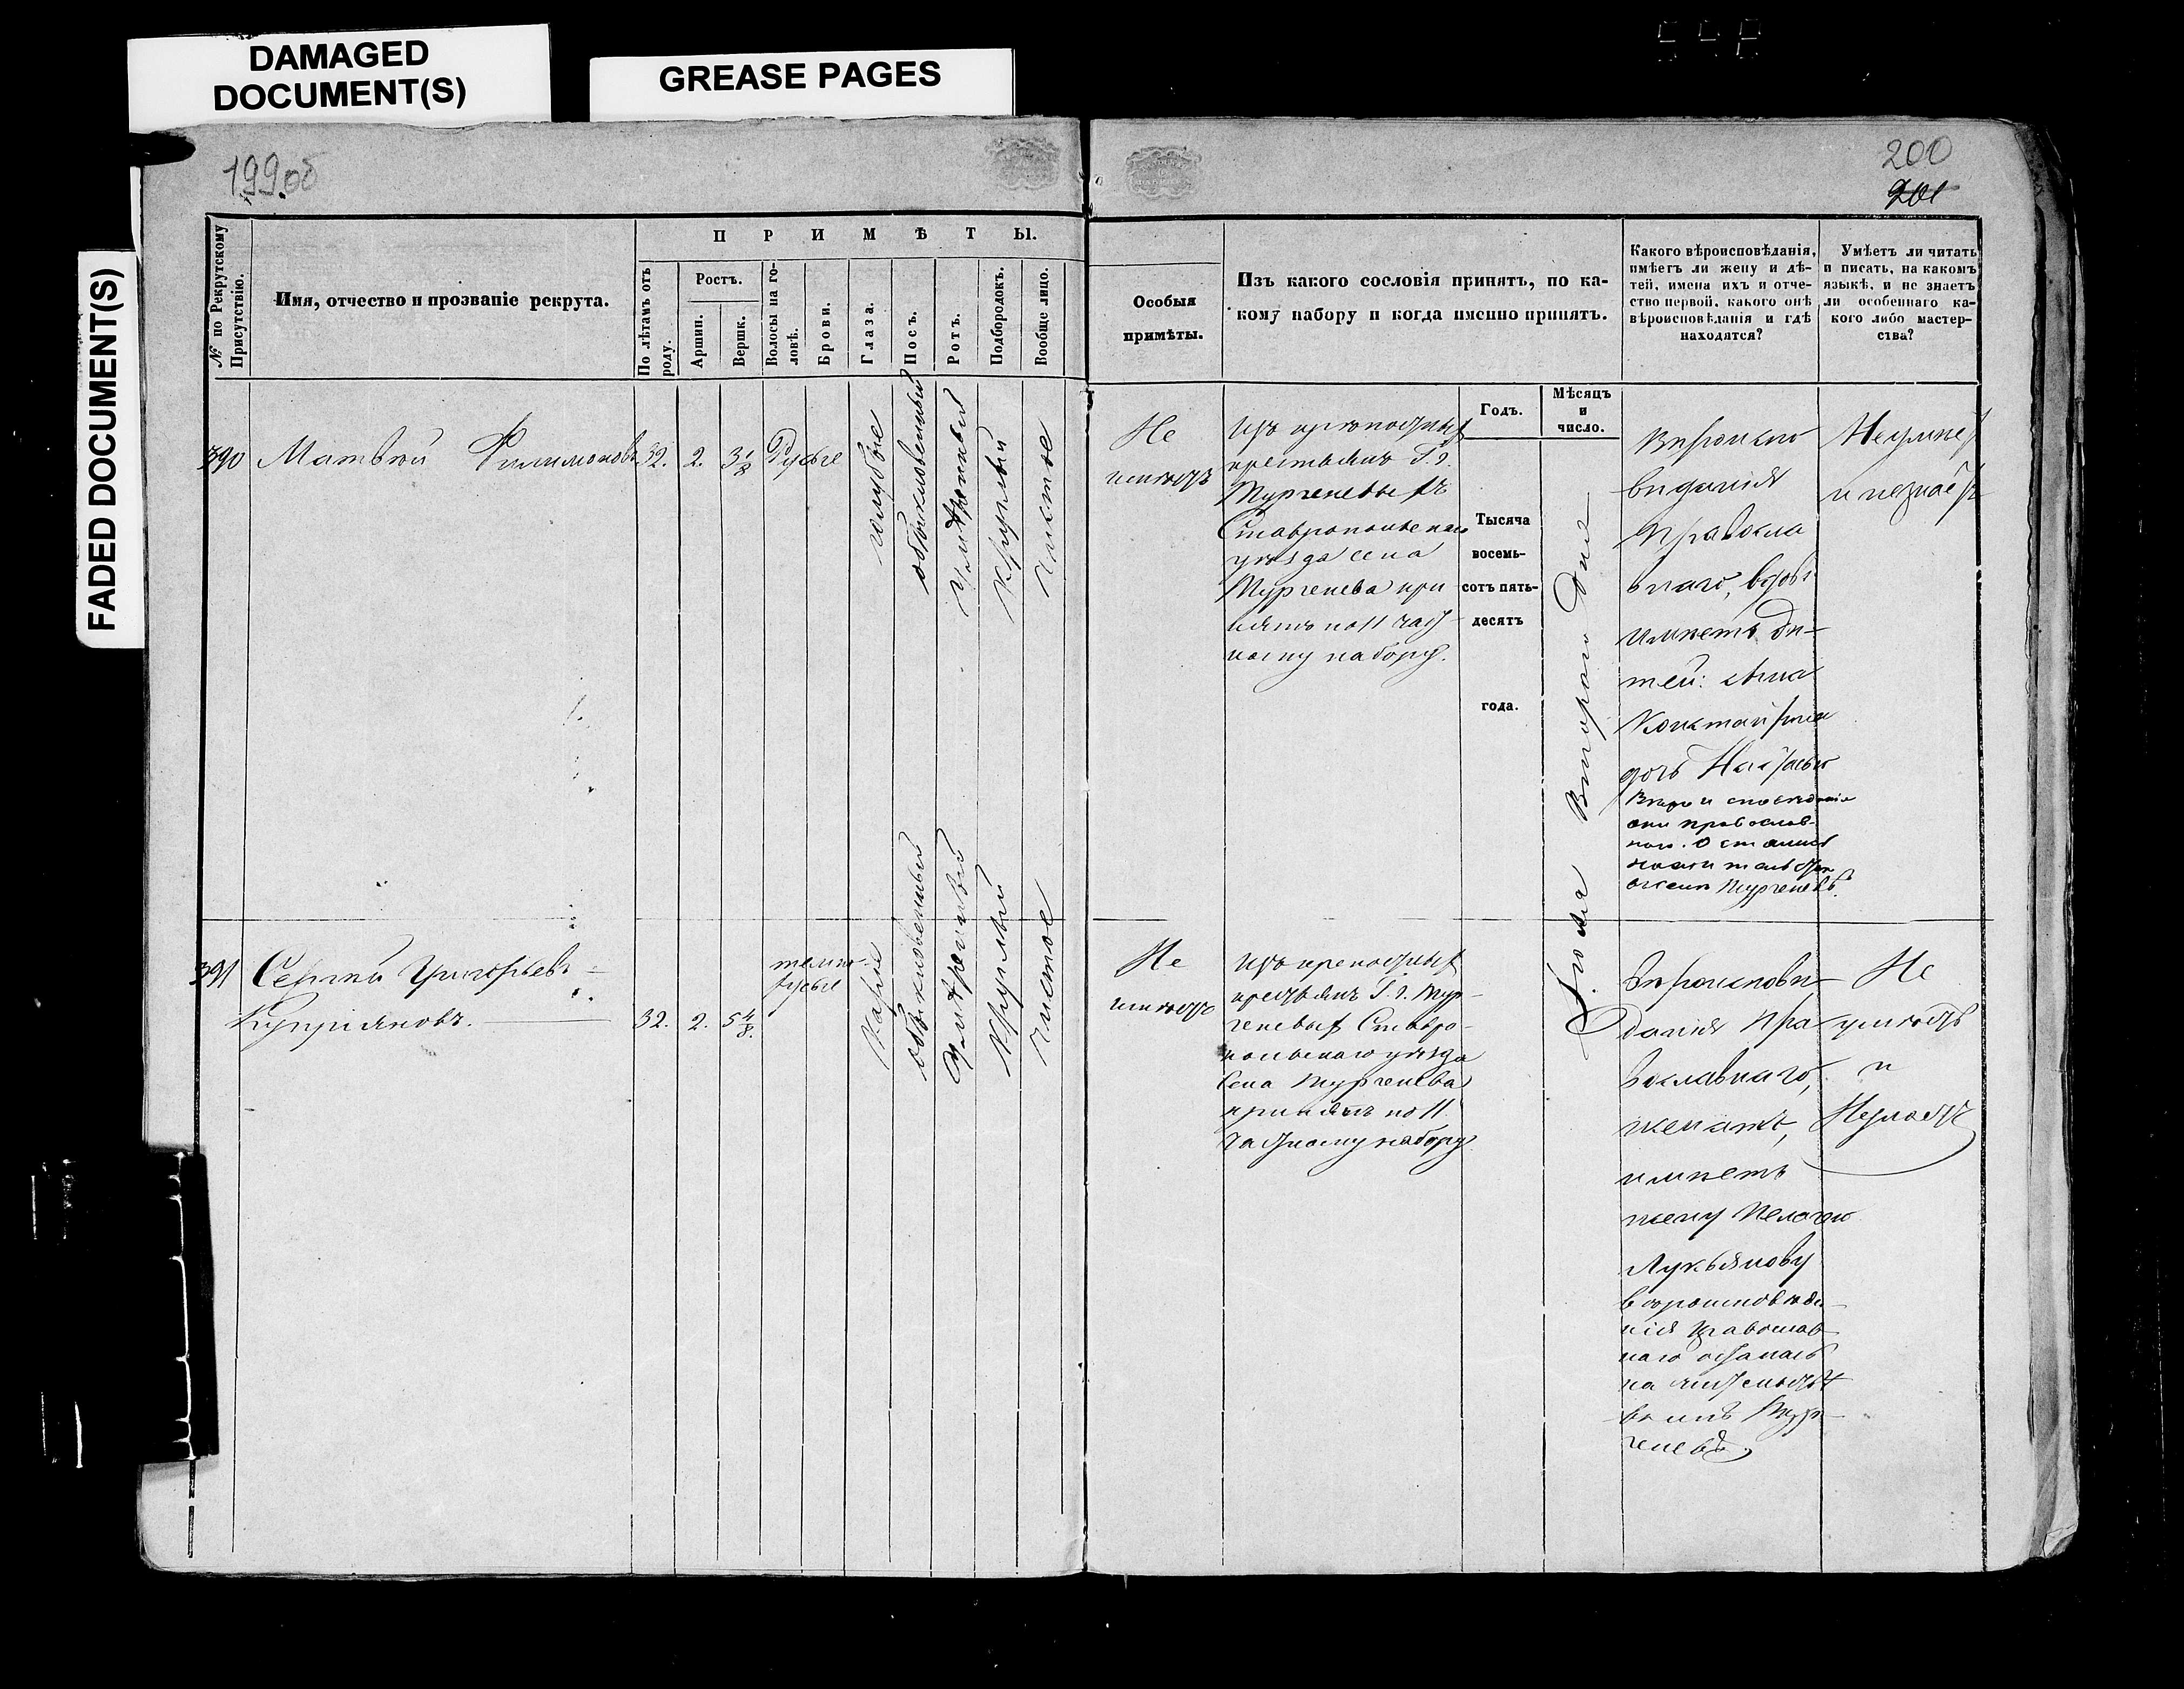 DAMAGED
DOCUMENT(S)
GREASE PAGES
FADED DOCUMENT(S)
199об
200
201
№ по Рекрутскому
Присутствію.
Имя, отчество и прозваніе рекрута.
ПРИМѢТЫ.
По лѣтамъ отъ
роду.
Ростъ.
Аршин.
Вершк.
Волосы на го-
ловѣ.
Брови.
Глаза.
Носъ.
Ротъ.
Подбородокъ.
Вообще лицо.
Особыя
примѣты.
Изъ какого сословія принятъ, по ка-
кому набору и когда именно принятъ.
Какого вѣроисповѣданія,
имѣетъ ли жену и дѣ-
тей, имена ихъ и отче-
ство первой, какого онѣ
вѣроисповѣданія и гдѣ
находятся?
Умѣетъ ли читать
и писать, на какомъ
языкѣ, и не знаетъ
ли особеннаго ка-
кого либо мастер-
ства?
Годъ.
Мѣсяцъ
и
число.
Тысяча
восемь-
сотъ пять-
десятъ
года.
Іюля Втораго Дня
390
Матвѣй Филимоновъ
32.
2.
3 1/8
Русые
голубые
обыкновенный
умѣренный
круглый
чистое
Не
имѣетъ
Изъ крѣпостныхъ
крестьянъ Г. г.
Тургеневыхъ
Ставропольскаго
уѣзда села
Тургенева при
нятъ по 11 част
ному набору.
Вѣроиспо
вѣданія
Правосла
внаго, вдовъ
имѣетъ дѣ-
тей: сына
Константина
дочь Настасью
Вѣроисповѣданія
они православ-
наго. Остались
на жительствѣ
въ селѣ Тургеневѣ.
Неумѣетъ
и незнаетъ
391
Сергѣй Григорьевъ
Купріяновъ.
32.
2.
5 4/8.
темно-
русые
Карие
обыкновенный
Умѣренный
Круглый
чистое
Не
имѣетъ
Изъ крепостныхъ
крестьянъ Г. г. Тур-
геневыхъ Ставро-
польскаго уѣзда
села Тургенева
принятъ по 11
частному набору
Вѣроисповѣ-
данія Пра
вославнаго,
женатъ,
имѣетъ
жену Пелагею
Лукьянову
вѣроисповѣда-
нія православ-
наго осталась
на жительствѣ
въ селѣ Тур-
геневѣ.
Не
умѣетъ
и
Незнаетъ